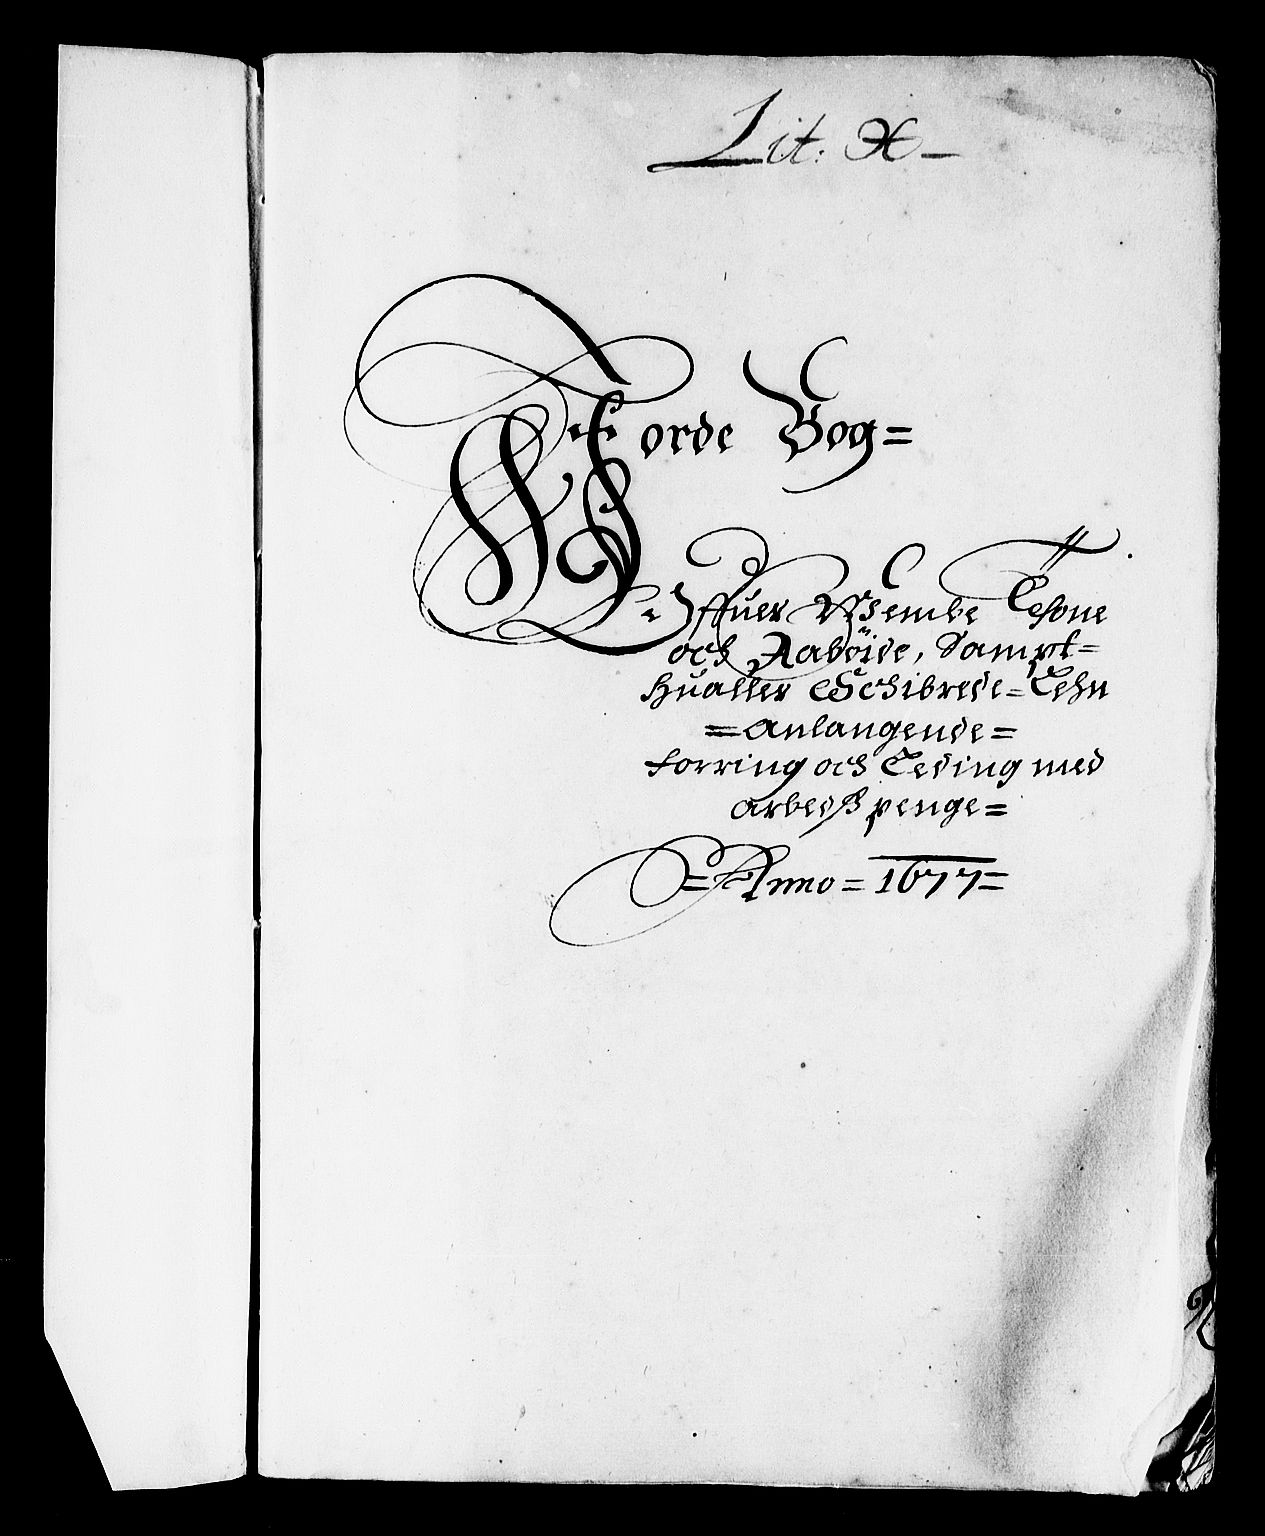 Lit: X
Jorde Bog=
Offuer Wembe Lehne
och Aaböide, Sampt=
Hualler Schibrede=Lehn
=Anlangende=
förring och Leding med
arbeidß penge=
=Anno=1677=